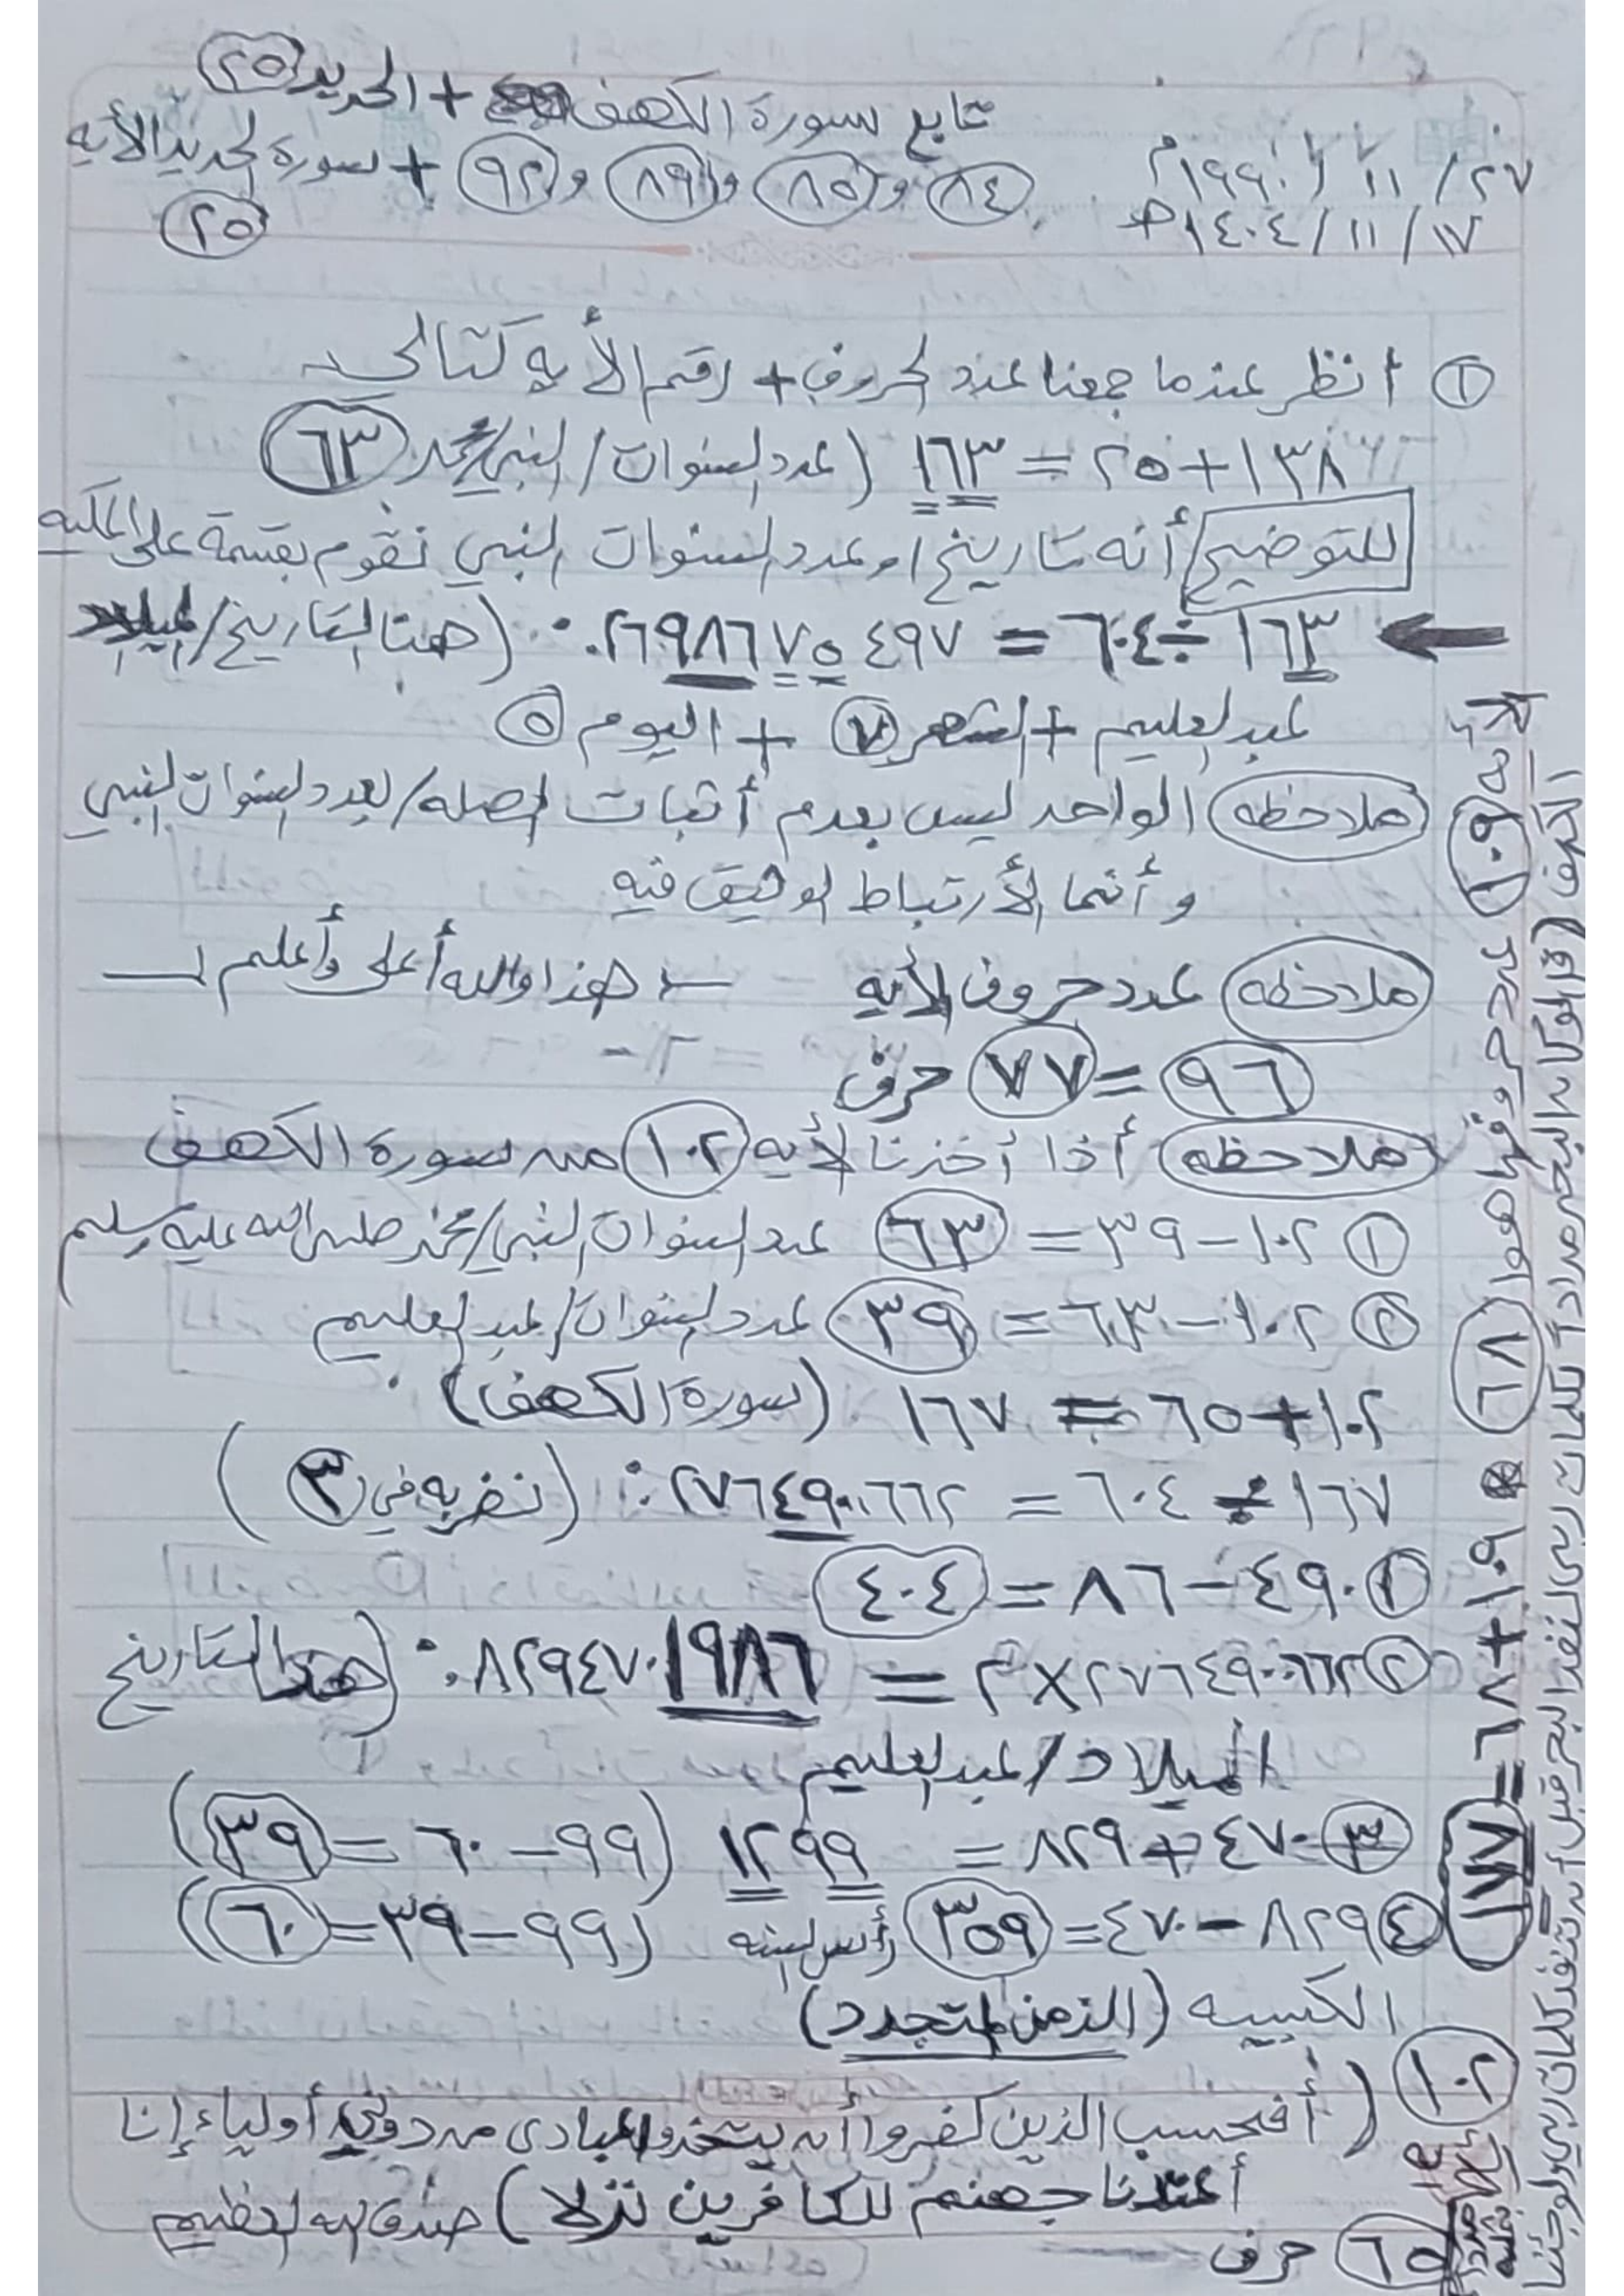 تابع سورة الكهف + الحديد ٢٥
٢٧ / ١١ / ١٩٩٠م
٨٤ و ٨٥ و ٨٩ و ٩٢ + سورة الحديد الأيه ٢٥
١٧ / ١١ / ١٤٠٤هـ
١ انظر عندما جمعنا عدد الحروف + رقم الأيه كتالي
١٣٨ + ٢٥ = ١٦٣ (عدد السنوات / النبي / محمد ٦٣
للتوضيح أنه تاريخ / و عدد السنوات النبي نقوم بقسمة على المكيه
١٦٣ ÷ ٦٠٤ = ٠.٢٦٩٨٦٧٥٤٩٧ (هنا التاريخ / الميلاد
عبد العليم + الشهر ٧ + اليوم ٥
ملاحظه الواحد ليس بعدم أثبات الصله / بعدد السنوات النبي
و أنما الأرتباط الوثيق فيه
ملاحظه عدد حروف الأيه هذا والله أعلى وأعلم
٩٦ = ٧٧ حرف
ملاحظه أذا أخذنا الأيه ١٠٢ من سورة الكهف
١ ١٠٢ - ٣٩ = ٦٣ عدد السنوات النبي / محمد صلى الله عليه وسلم
٢ ١٠٢ - ٦٣ = ٣٩ عدد السنوات / عبد العليم
١٠٢ + ٦٥ = ١٦٧ (سورة الكهف)
١٦٧ ÷ ٦٠٤ = ٠.٢٧٦٤٩٠٠٦٦٢ (نضربه في ٣)
١ ٤٩٠ - ٨٦ = ٤٠٤
٢ ٢٧٦٤٩٠٠٦٦٢ × ٣ = ٠.٨٢٩٤٧٠١٩٨٦ (هذا التاريخ
الميلاد / عبد العليم
٣ ٤٧٠ + ٨٢٩ = ١٢٩٩ (٩٩ - ٦٠ = ٣٩)
٤ ٨٢٩ - ٤٧٠ = ٣٥٩ رأس السنه (٩٩ - ٣٩ = ٦٠)
الكبيسه (الزمن المتجدد)
١٠٢ (أفحسب الذين كفروا أن يتخذوا عبادى من دوني أولياء إنا
أعتدنا جهنم للكافرين نزلا) صدق الله العظيم
٦٥ حرف
الأيه ١٠٩ عدد حروفها هوا ٦٨ * ١٠٩ + ٦٨ = ١٧٧
الكهف (قل لو كان البحر مداداً لكلمات ربي لنفد البحر قبل أن تنفد كلمات ربي ولو جئنا
بمثله مدداً